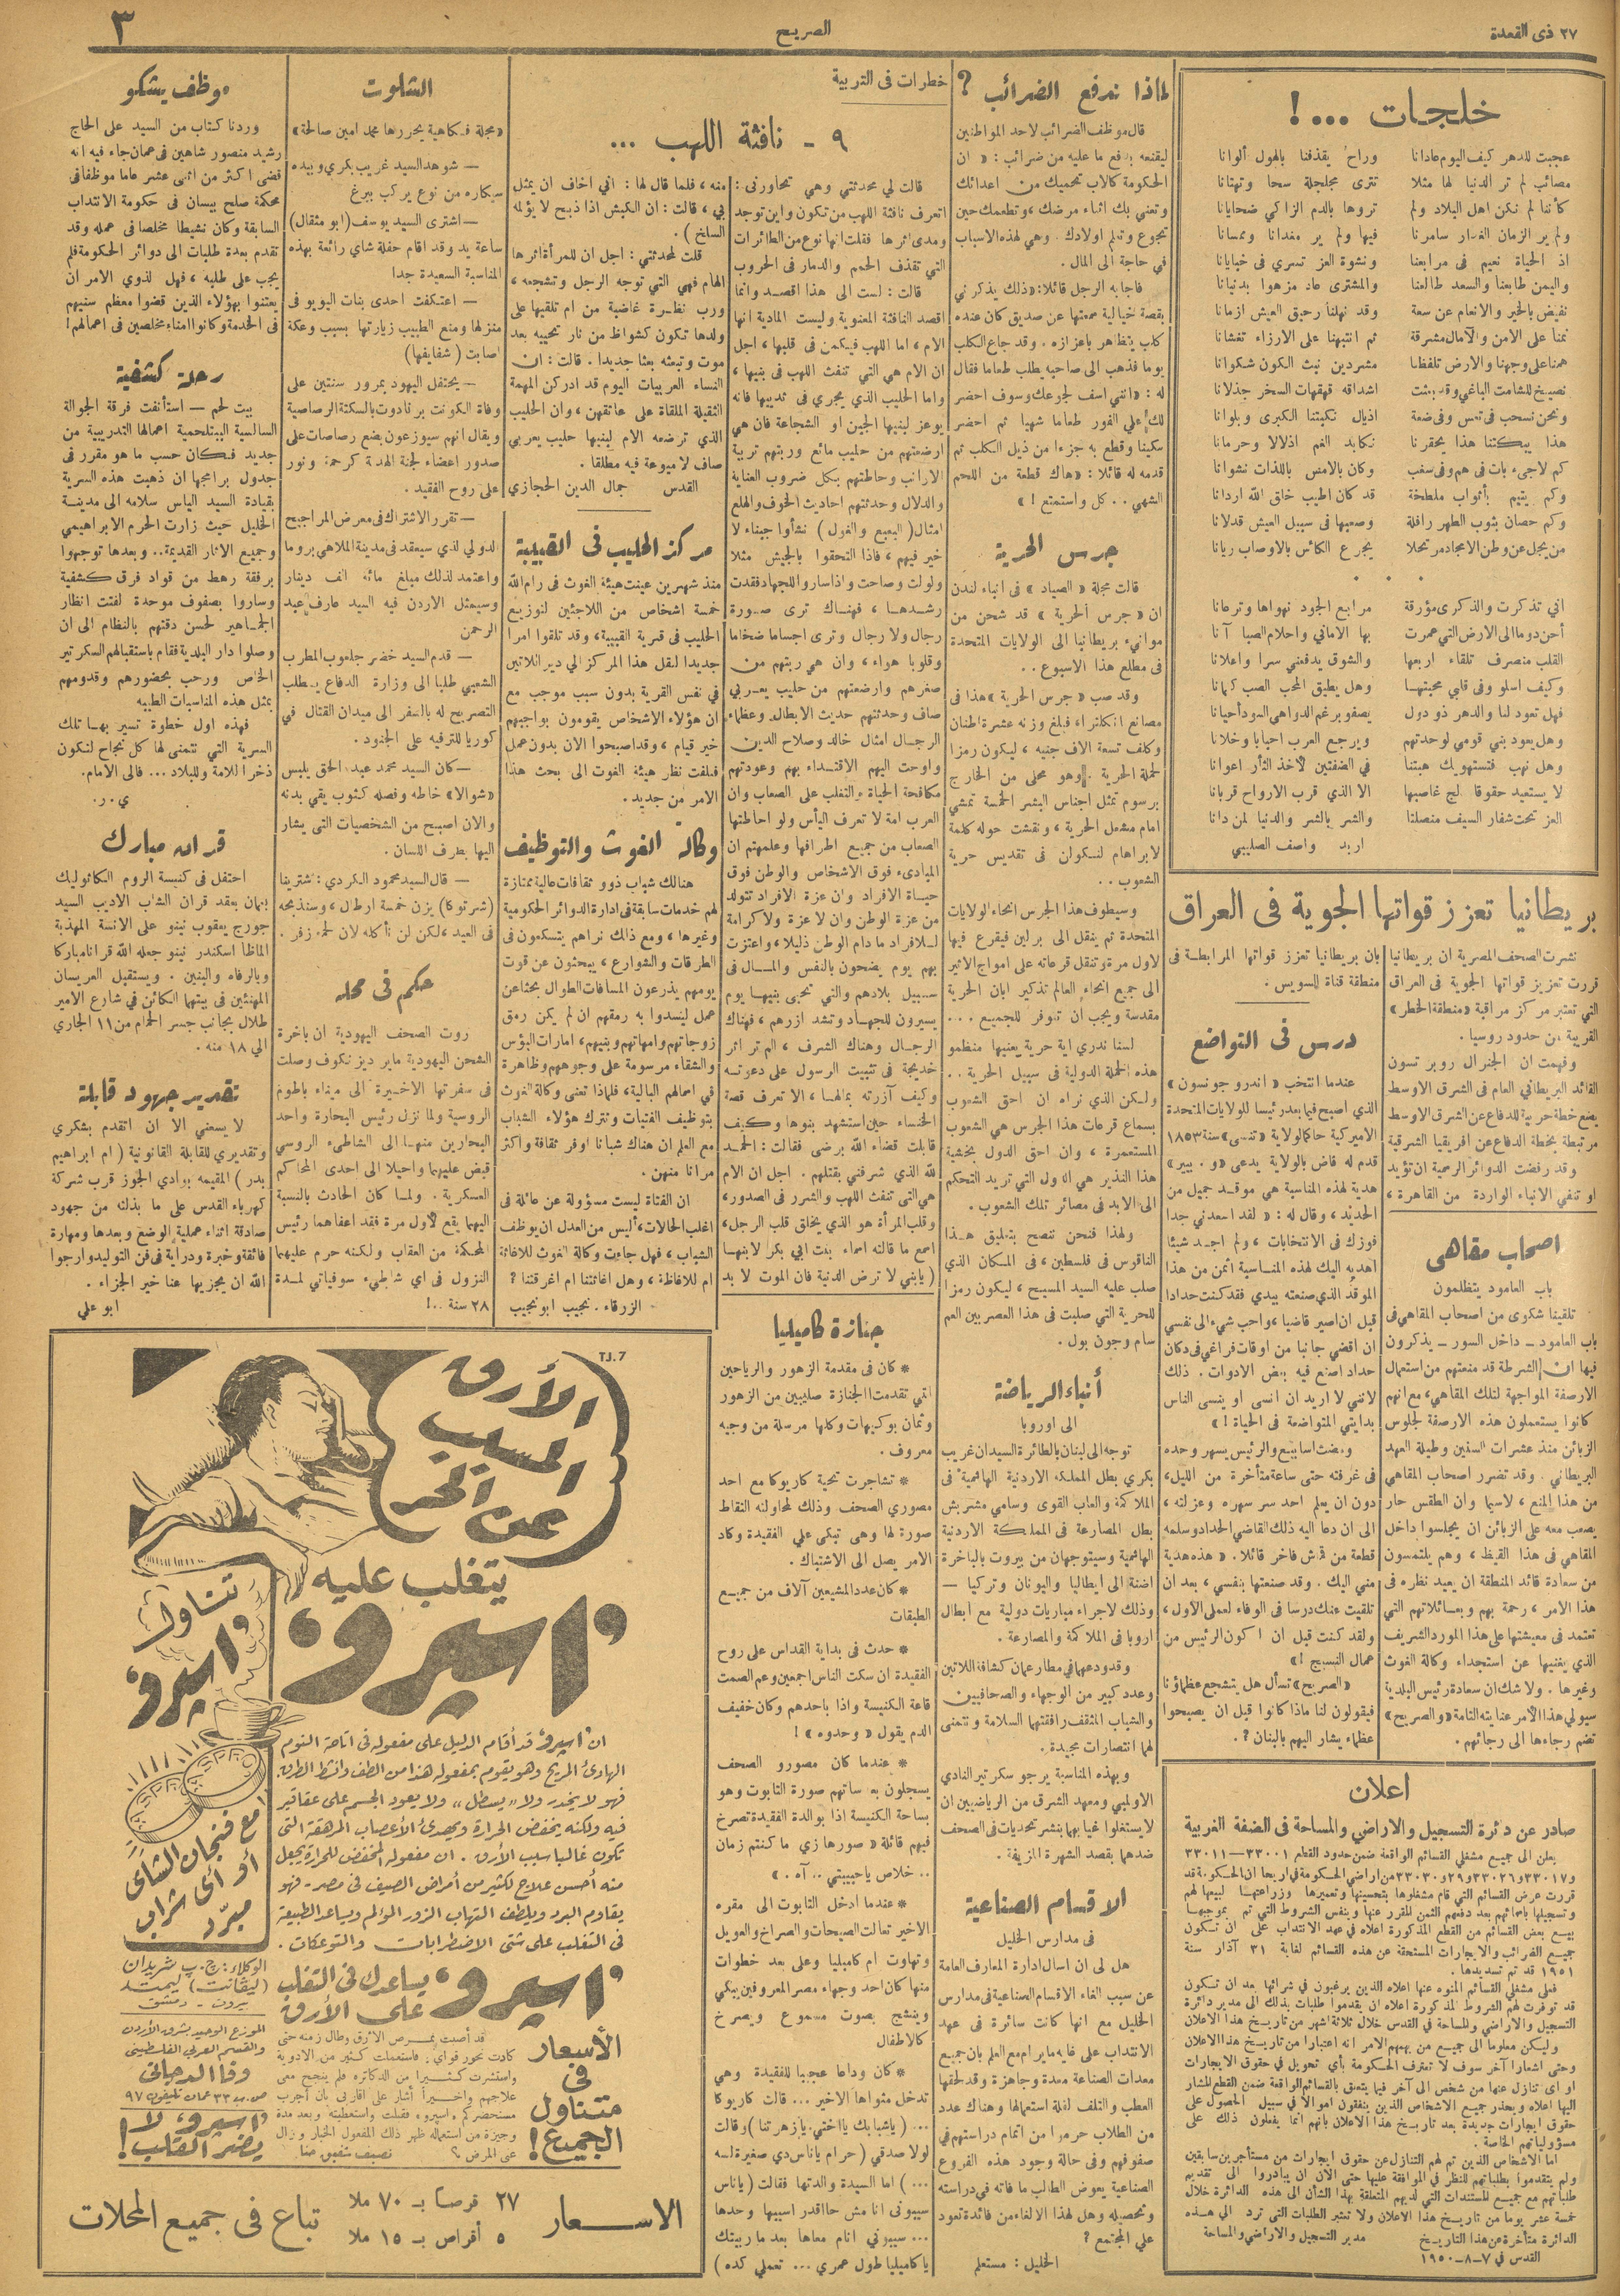 ٢٧ ذى القعدة
الصريح
٣
خلجات ...!
عجبت للدهر كيف اليوم عادانا
وراح يقذفنا بالهول ألوانا
مصائب لم تر الدنيا لها مثلا
تترى مجلجلة سحا وتهتانا
كأننا لم نكن اهل البلاد ولم
تروها بالدم الزاكي ضحايانا
ولم ير الزمان الغدار سامرنا
فيها ولم ير مغدانا وممسانا
اذ الحياة نعيم فى مرابعنا
ونشوة العز تسري فى خبايانا
واليمن طابعنا والسعد طالعنا
والمشترى عاد مزهوا بدنيانا
نفيض بالخير والانعام عن سعة
وقد نهلنا رحيق العيش ازمانا
نمنا على الامن والآمال مشرقة
ثم انتبهنا على الارزاء تغشانا
همنا على وجهنا والارض تلفظنا
مشردين نبث الكون شكوانا
نصيخ للشامت الباغي وقد بثت
اشداقه قهقهات السخر جذلانا
ونحن نسحب فى تعس وفى ضعة
اذيال نكبتنا الكبرى وبلوانا
هذا يبكتنا هذا يحقرنا
نكابد الغم اذلالا وحرمانا
كم لاجىء بات فى هم وفى سغب
وكان بالامس باللذات نشوانا
وكم يتيم بأثواب ملطخة
قد كان اطيب خلق الله اردانا
وكم حصان بثوب الطهر رافلة
وصحبها فى سبيل العيش قدلانا
من يجل عن وطن الامجاد مرتحلا
يجرع الكأس بالاوصاب ريانا
اني تذكرت والذكرى مؤرقة
مرابع الجود نهواها وترعانا
أحن دوما الى الارض التي عمرت
بها الاماني واحلام الصبا آنا
القلب منصرف تلقاء اربعها
والشوق يدفعني سرا واعلانا
وكيف اسلو وفى قلبي محبتها
وهل يطيق المحب الصب كتمانا
فهل تعود لنا والدهر ذو دول
يصفو برغم الدواهي السود أحيانا
وهل يعود بني قومي لوحدتهم
ويرجع العرب احبابا وخلانا
وهل نهب فتستهويك هبتنا
في الضفتين لأخذ الثأر اعوانا
لا يستعيد حقوقا لج غاصبها
الا الذي قرب الارواح قربانا
العز تحت شفار السيف منصلتا
والشر بالشر والدنيا لمن دانا
اربد واصف الصليبي
بريطانيا تعزز قواتها الجوية فى العراق
نشرت الصحف المصرية ان بريطانيا
قررت تعزيز قواتها الجوية فى العراق
التي تعتبر مركز مراقبة «منطقة الخطر»
القريبة من حدود روسيا.
وفهمت ان الجنرال روبرتسون
القائد البريطاني العام فى الشرق الاوسط
يضع خطة حربية للدفاع عن الشرق الاوسط
مرتبطة بخطة الدفاع عن افريقيا الشرقية
وقد رفضت الدوائر الرسمية ان تؤيد
او تنفي الانباء الواردة من القاهرة،
بان بريطانيا تعزز قواتها المرابطة فى
منطقة قناة السويس.
اصحاب مقاهى
باب العامود يتظلمون
تلقينا شكوى من اصحاب المقاهى فى
باب العامود - داخل السور - يذكرون
فيها ان الشرطة قد منعتهم من استعمال
الارصفة المواجهة لتلك المقاهي، مع انهم
كانوا يستعملون هذه الارصفة لجلوس
الزبائن منذ عشرات السنين وطيلة العهد
البريطاني. وقد تضرر اصحاب المقاهي
من هذا المنع، لاسيما وان الطقس حار
يصعب معه على الزبائن ان يجلسوا داخل
المقاهي فى هذا القيظ، وهم يلتمسون
من سعادة قائد المنطقة ان يعيد نظره فى
هذا الامر، رحمة بهم وبعائلاتهم التي
تعتمد فى معيشتها على هذا المورد الشريف
الذي يغنيها عن استجداء وكالة الغوث
وغيرها. ولا شك ان سعادة رئيس البلدية
سيولي هذا الأمر عنايته التامة «والصريح»
تضم رجاءها الى رجائهم.
درس فى التواضع
عندما انتخب «اندرو جونسون»
الذي اصبح فيما بعد رئيسا للولايات المتحدة
الاميركية حاكما لولاية «تنسي» سنة ١٨٥٣
قدم له قاض بالولاية يدعى «و. بيبر»
هدية لهذه المناسبة هي موقد جميل من
الحديد، وقال له: « لقد اسعدني جدا
فوزك فى الانتخابات، ولم اجد شيئا
اهديه اليك لهذه المناسبة اثمن من هذا
الموقد الذي صنعته بيدي فقد كنت حدادا
قبل ان اصير قاضيا، واحب شيء الى نفسي
ان اقضي جانبا من اوقات فراغي فى دكان
حداد اصنع فيه بعض الادوات. ذلك
لانني لا اريد ان انسى او ينسى الناس
بدايتي المتواضعة فى الحياة!»
ومضت اسابيع والرئيس يسهر وحده
فى غرفته حتى ساعة متأخرة من الليل،
دون ان يعلم احد سر سهره وعزلته،
الى ان دعا اليه ذلك القاضي الحداد وسلمه
قطعة من قماش فاخر قائلا. « هذه هدية
مني اليك. وقد صنعتها بنفسي، بعد ان
تلقيت عنك درسا فى الوفاء لعملى الأول،
ولقد كنت قبل ان اكون الرئيس من
عمال النسيج!»
«الصريح» تسأل هل يتشجع عظماؤنا
فيقولون لنا ماذا كانوا قبل ان يصبحوا
عظماء يشار اليهم بالبنان؟.
اعلان
صادر عن دائرة التسجيل والاراضي والمساحة فى الضفة الغربية
يعلن الى جميع مشغلي القسائم الواقعة ضمن حدود القطع ٣٣٠٠١—٣٣٠١١
و٣٣٠١٧ و٣٣٠٢١ و٣٣٠٢٩ و٣٣٠٣٠ من اراضي الحكومة في اريحا ان الحكومة قد
قررت عرض القسائم التي قام مشغلوها بتحسينها وتعميرها وزراعتها لبيعها لهم
وتسجيلها باسمائهم بعد دفعهم الثمن المقرر عنها وبنفس الشروط التي تم بموجبها
بيع بعض القسائم من القطع المذكورة اعلاه في عهد الانتداب على ان تكون
جميع الضرائب والايجارات المستحقة عن هذه القسائم لغاية ٣١ آذار سنة
١٩٥١ قد تم تسديدها.
فعلى مشغلي القسائم المنوه عنها اعلاه الذين يرغبون في شرائها بعد ان تكون
قد توفرت لهم الشروط المذكورة اعلاه ان يقدموا طلبات بذلك الى مدير دائرة
التسجيل والاراضي والمساحة في القدس خلال ثلاثة اشهر من تاريخ هذا الاعلان
وليكن معلوما الى جميع من يهمهم الامر انه اعتبارا من تاريخ هذا الاعلان
وحتى اشعارا آخر سوف لا تعترف الحكومة بأي تحويل في حقوق الايجارات
او اي تنازل عنها من شخص الى آخر فيما يتعلق بالقسائم الواقعة ضمن القطع المشار
اليها اعلاه ويحذر جميع الاشخاص الذين ينفقون اموالا في سبيل الحصول على
حقوق ايجارات جديدة بعد تاريخ هذا الاعلان بأنهم انما يفعلون ذلك على
مسؤولياتهم الخاصة.
اما الاشخاص الذين تم لهم التنازل عن حقوق ايجارات من مستأجرين سابقين
ولم يتقدموا بطلباتهم للنظر في الموافقة عليها حتى الآن ان يبادروا الى تقديم
طلباتهم مع جميع المستندات التي لديهم المتعلقة بهذا الشأن الى هذه الدائرة خلال
خمسة عشر يوما من تاريخ هذا الاعلان ولا تعتبر الطلبات التي ترد الى هذه
الدائرة متأخرة عن هذا التاريخ
مدير التسجيل والاراضي والمساحة
القدس في ٧-٨-١٩٥٠
لماذا ندفع الضرائب ؟
قال موظف الضرائب لاحد المواطنين
ليقنعه بدفع ما عليه من ضرائب: « ان
الحكومة كالاب تحميك من اعدائك
وتعني بك اثناء مرضك، وتطعمك حين
تجوع وتعلم اولادك. وهي لهذه الاسباب
في حاجة الى المال.
فاجابه الرجل قائلا: «ذلك يذكرني
بقصة خيالية سمعتها عن صديق كان عنده
كلب يتظاهر باعزازه. وقد جاع الكلب
يوما فذهب الى صاحبه يطلب طعاما فقال
له: « انني آسف لجوعك وسوف احضر
لك على الفور طعاما شهيا ثم احضر
سكينا وقطع به جزءا من ذيل الكلب ثم
قدمه له قائلا: «هاك قطعة من اللحم
الشهي.. كل واستمتع!»
جرس الحرية
قالت مجلة « الصياد » فى انباء لندن
ان « جرس الحرية » قد شحن من
موانيء بريطانيا الى الولايات المتحدة
فى مطلع هذا الاسبوع..
وقد صب « جرس الحرية » هذا فى
مصانع انكلترا، فبلغ وزنه عشرة اطنان
وكلف تسعة الاف جنيه، ليكون رمزا
لحملة الحرية. وهو محلى من الخارج
برسوم تمثل اجناس البشر الخمسة تمشي
امام مشعل الحرية، ونقشت حوله كلمة
لابراهام لنكولن فى تقديس حرية
الشعوب..
وسيطوف هذا الجرس انحاء الولايات
المتحدة ثم ينقل الى برلين فيقرع فيها
لاول مرة وتنقل قرعاته على امواج الاثير
الى جميع انحاء العالم تذكير ابان الحرية
مقدسة ويجب ان تتوفر للجميع...
لسنا ندري اية حرية يعنيها منظمو
هذه الحملة الدولية فى سبيل الحرية..
ولكن الذي نراه ان احق الشعوب
بسماع قرعات هذا الجرس هي الشعوب
المستعمرة، وان احق الدول بخشية
هذا النذير هي الدول التي تريد التحكم
الى الابد فى مصائر تلك الشعوب.
ولهذا فنحن ننصح بتعليق هذا
الناقوس فى فلسطين، فى المكان الذي
صلب عليه السيد المسيح، ليكون رمزا
للحرية التي صلبت فى هذا العصر بين العم
سام وجون بول.
أنباء الرياضة
الى اوروبا
توجه الى لبنان بالطائرة السيدان غريب
بكري بطل المملكه الاردنية الهاشمية فى
الملاكمة والعاب القوى وسامي مشربش
بطل المصارعة فى المملكة الاردنية
الهاشمية وسيتوجهان من بيروت بالباخرة
اضنة الى ايطاليا واليونان وتركيا —
وذلك لاجراء مباريات دولية مع ابطال
اروبا فى الملاكمة والمصارعة.
وقد ودعهما في مطار عمان كشافة اللاتين
وعدد كبير من الوجهاء والصحافيين
والشباب المثقف رافقتهما السلامة ونتمنى
لهما انتصارات مجيدة.
وبهذه المناسبة يرجو سكرتير النادي
الاولمبي ومعهد الشرق من الرياضيين ان
لا يستغلوا غيابهما بنشر تحديات فى الصحف
ضدهما بقصد الشهرة المزيفة.
الاقسام الصناعية
فى مدارس الخليل
هل لى ان اسال ادارة المعارف العامة
عن سبب الغاء الاقسام الصناعية فى مدارس
الخليل مع انها كانت سائرة فى عهد
الانتداب على غاية ما يرام مع العلم بان جميع
معدات الصناعة معدة وجاهزة وقد لحقها
العطب والتلف لقلة استعمالها وهناك عدد
من الطلاب حرموا من اتمام دراستهم في
صفوفهم وفى حالة وجود هذه الفروع
الصناعية يعوض الطالب ما فاته في دراسته
وتحصيله وهل لهذا الالغاء من فائدة تعود
علي المجتمع؟
الخليل: مستعلم
خطرات فى التربية
٩ - نافثة اللهب ...
قالت لي محدثتي وهي تحاورنى:
اتعرف نافثة اللهب من تكون واين توجد
ومدى اثرها فقلت انها نوع من الطائرات
التي تقذف الحمم والدمار فى الحروب
قالت: لست الى هذا اقصد وانما
اقصد النافثة المعنوية وليست المادية انها
الام، اما اللهب فيكمن فى قلبها، اجل
ان الام هي التي تنفث اللهب فى بنيها،
واما الحليب الذي يجري فى ثدييها فانه
يوعز لبنيها الجبن او الشجاعة فان هي
ارضعتهم من حليب مائع وربتهم تربية
الارانب وحاطتهم بكل ضروب العناية
والدلال وحدثتهم احاديث الخوف والهلع
امثال (البعبع والغول) نشأوا جبناء لا
خير فيهم، فاذا التحقوا بالجيش مثلا
ولولت وصاحت واذا ساروا للجهاد فقدت
رشدها، فهناك ترى صورة
رجال ولا رجال وترى اجساما ضخاما
وقلوبا هواء، وان هي ربتهم من
صغرهم وارضعتهم من حليب يعربي
صاف وحدثتهم حديث الابطال وعظماء
الرجال امثال خالد وصلاح الدين
واوحت اليهم الاقتداء بهم وعودتهم
مكافحة الحياة والتغلب على الصعاب وان
العرب امة لا تعرف اليأس ولو احاطتها
الصعاب من جميع اطرافها وعلمتهم ان
المبادىء فوق الاشخاص والوطن فوق
حياة الافراد وان عزة الافراد تتولد
من عزة الوطن وان لا عزة ولا كرامة
للافراد ما دام الوطن ذليلا، واعتزت
بهم يوم يضحون بالنفس والمال فى
سبيل بلادهم والتي تحبى بنيها يوم
يسيرون للجهاد وتشد ازرهم، فهناك
الرجال وهناك الشرف، الم تر اثر
خديجة فى تثبيت الرسول على دعوته
وكيف آزرته بمالها، الا تعرف قصة
الخنساء حين استشهد بنوها وكيف
قابلت قضاء الله برضى فقالت: الحمد
لله الذي شرفني بقتلهم. اجل ان الام
هي التى تنفث اللهب والشرر فى الصدور،
وقلب المرأة هو الذي يخلق قلب الرجل،
اسمع ما قالته اسماء بنت ابي بكر لابنها
(يابني لا ترض الدنية فان الموت لا بد
منه، فلما قال لها: اني اخاف ان يمثل
بي، قالت: ان الكبش اذا ذبح لا يؤلمه
السلخ).
قلت لمحدثتي: اجل ان للمرأة اثرها
الهام فهي التي توجه الرجل وتشجعه،
ورب نظرة غاضبة من ام تلقيها على
ولدها تكون كشواظ من نار تحييه بعد
موت وتبعثه بعثا جديدا. قالت: ان
النساء العربيات اليوم قد ادركن المهمة
الثقيلة الملقاة على عاتقهن، وان الحليب
الذي ترضعه الام لبنيها حليب يعربي
صاف لا ميوعة فيه مطلقا.
القدس جمال الدين الحجازي
مركز الحليب فى القبيبة
منذ شهرين عينت هيئة الغوث فى رام الله
خمسة اشخاص من اللاجئين لتوزيع
الحليب فى قرية القبيبة، وقد تلقوا امرا
جديدا لنقل هذا المركز الى دير اللاتين
في نفس القرية بدون سبب موجب مع
ان هؤلاء الاشخاص يقومون بواجبهم
خير قيام، وقد اصبحوا الان بدون عمل
فنلفت نظر هيئة الغوث الى بحث هذا
الامر من جديد.
وكالة الغوث والتوظيف
هنالك شباب ذوو ثقافات عالية ممتازة
لهم خدمات سابقة فى ادارة الدوائر الحكومية
وغيرها، ومع ذلك نراهم يتسكعون فى
الطرقات والشوارع، يبحثون عن قوت
يومهم يذرعون المسافات الطوال بحثا عن
عمل ليسدوا به رمقهم ان لم يكن رمق
زوجاتهم وامهاتهم وبنيهم، امارات البؤس
والشقاء مرسومة على وجوههم وظاهرة
في اسمالهم البالية، فلماذا تعنى وكالة الغوث
بتوظيف الفتيات وتترك هؤلاء الشباب
مع العلم ان هناك شبانا اوفر ثقافة واكثر
مرانا منهن.
ان الفتاة ليست مسؤولة عن عائلة فى
اغلب الحالات، أليس من العدل ان يوظف
الشباب، فهل جاءت وكالة الغوث للاغاثة
ام للاغاظة، وهل اغاثتنا ام اغرقتنا؟
الزرقاء. نجيب ابو نجيب
جنازة كاميليا
* كان فى مقدمة الزهور والرياحين
التي تقدمت الجنازة صليبين من الزهور
وثمان بوكيهات وكلها مرسلة من وجيه
معروف.
* تشاجرت تحية كاريوكا مع احد
مصوري الصحف وذلك لمحاولته التقاط
صورة لها وهى تبكى على الفقيدة وكاد
الامر يصل الى الاشتباك.
* كان عدد المشيعين آلاف من جميع
الطبقات
* حدث فى بداية القداس على روح
الفقيدة ان سكت الناس اجمعين وعم الصمت
قاعة الكنيسة واذا باحدهم وكان خفيف
الدم يقول « وحدوه »!
* عندما كان مصورو الصحف
يسجلون بعدساتهم صورة التابوت وهو
بساحة الكنيسة اذا بوالدة الفقيدة تصرخ
فيهم قائلة « صورها زي ما كنتم زمان
.. خلاص ياحبيبتي.. آه.»
* عندما ادخل التابوت الى مقره
الاخير تعالت الصيحات والصراخ والعويل
وتهاوت ام كاميليا وعلى بعد خطوات
منها كان احد وجهاء مصر المعروفين يبكي
وينشج بصوت مسموع ويصرخ
كالاطفال
* كان وداعا عجيبا للفقيدة وهي
تدخل مثواها الاخير... قالت كاريوكا
... (ياشبابك يااختي. يازهرتنا) وقالت
لولا صدقي (حرام ياناس دي صغيرة لسه
...) اما السيدة والدتها فقالت (ياناس
سيبونى انا مش حااقدر اسيبها وحدها
... سيبوني انام معاها بعد ما ربيتك
ياكاميليا طول عمري... تعملي كده)
الشلوت
«مجلة فكاهية يحررها محمد امين صالحة»
— شوهد السيد غريب بكري وبيده
سيكاره من نوع يركب ببرغ
— اشترى السيد يوسف (ابو مثقال)
ساعة يد وقد اقام حفلة شاي رائعة بهذه
المناسبة السعيدة جدا
— اعتكفت احدى بنات اليويو فى
منزلها ومنع الطبيب زيارتها بسبب وعكة
اصابت (شفايفها)
— يحتفل اليهود بمرور سنتين على
وفاة الكونت برنادوت بالسكتة الرصاصية
ويقال انهم سيوزعون بضع رصاصات على
صدور اعضاء لجنة الهدنة كرحمة ونور
على روح الفقيد.
— تقرر الاشتراك فى معرض المراجيح
الدولي لذي سيعقد فى مدينة الملاهي بروما
واعتمد لذلك مبلغ مائة الف دينار
وسيمثل الاردن فيه السيد عارف عبد
الرحمن
— قدم السيد خضر جلعوب المطرب
الشعبي طلبا الى وزارة الدفاع يطلب
التصريح له بالسفر الى ميدان القتال في
كوريا للترفيه على الجنود.
— كان السيد محمد عبد الحق يلبس
«شوالا» خاطه وفصله كثوب يقي بدنه
والان اصبح من الشخصيات التى يشار
اليها بطرف اللسان.
— قال السيد محمود الكردي: اشترينا
(شرتوكا) يزن خمسة ارطال، وسنذبحه
فى العيد، لكن لن نأكله لان لحمه زفر.
حكم فى محله
روت الصحف اليهودية ان باخرة
الشحن اليهودية ماير ديزنكوف وصلت
فى سفرتها الاخيرة الى ميناء باطوم
الروسية ولما نزل رئيس البحارة واحد
البحارين منها الى الشاطىء الروسي
قبض عليهما واحيلا الى احدى المحاكم
العسكرية. ولما كان الحادث بالنسبة
اليهما يقع لاول مرة فقد اعفاهما رئيس
المحكمة من العقاب ولكنه حرم عليهما
النزول فى اي شاطىء سوفياتي لمدة
٢٨ سنة..!
موظف يشكو
وردنا كتاب من السيد على الحاج
رشيد منصور شاهين فى عمان جاء فيه انه
قضى اكثر من اثنى عشر عاما موظفا فى
محكمة صلح بيسان فى حكومة الانتداب
السابقة وكان نشيطا مخلصا فى عمله وقد
تقدم بعدة طلبات الى دوائر الحكومة فلم
يجب على طلبه، فهل لذوي الامر ان
يعتنوا بهؤلاء الذين قضوا معظم سنيهم
فى الخدمة وكانوا امناء مخلصين فى اعمالهم!
رحلة كشفية
بيت لحم — استأنفت فرقة الجوالة
السالسية البيتلحمية اعمالها التدريبية من
جديد فكان حسب ما هو مقرر فى
جدول برامجها ان ذهبت هذه السرية
بقيادة السيد الياس سلامه الى مدينة
الخليل حيث زارت الحرم الابراهيمي
وجميع الاثار القديمة.. وبعدها توجهوا
برفقة رهط من قواد فرق كشفية
وساروا بصفوف موحدة لفتت انظار
الجماهير لحسن دقتهم بالنظام الى ان
وصلوا دار البلدية فقام باستقبالهم السكرتير
الخاص ورحب بحضورهم وقدومهم
بمثل هذه المناسبات الطيبه
فهذه اول خطوة تسير بها تلك
السرية التي نتمنى لها كل نجاح لتكون
ذخرا للامة وللبلاد... فالى الامام.
ي.ر.
قران مبارك
احتفل فى كنيسة الروم الكاثوليك
بعمان بعقد قران الشاب الاديب السيد
جورج يعقوب نينو على الآنسة المهذبة
الماظا اسكندر نينو جعله الله قرانا مباركا
وبالرفاه والبنين. ويستقبل العريسان
المهنئين فى بيتهما الكائن في شارع الامير
طلال بجانب جسر الحمام من ١١ الجاري
الى ١٨ منه.
تقدير جهود قابلة
لا يسعني الا ان اتقدم بشكري
وتقديري للقابلة القانونية (ام ابراهيم
بدر) المقيمه بوادي الجوز قرب شركة
كهرباء القدس على ما بذلك من جهود
صادقة اثناء عملية الوضع وبعدها ومهارة
فائقة وخبرة ودراية فى فن التوليد وارجوا
الله ان يجزيها عنا خير الجزاء.
ابو علي
TJ.7
الأرق
المسبب
عن الحر
يتغلب عليه
"اسبرو"
تناول
"اسبرو"
مع فنجان الشاى
أو أى شراب
مبرّد
ان "اسبرو" قد أقام الدليل على مفعوله فى اتاحة النوم
الهادئ المريح وهو يقوم بمفعوله هذا من الطف وانشط الطرق.
فهو لا يخدر ولا "يسطل" ولا يعود الجسم على عقاقير
فيه ولكنه يخفض الحرارة ويهدئ الأعصاب المرهقة التى
تكون غالبا سبب الأرق. ان مفعوله المخفض للحرارة يجعل
منه أحسن علاج لكثير من أمراض الصيف فى مصر - فهو
يقاوم البرد ويلطف التهاب الزور المؤلم ويساعد الطبيعة
فى التغلب على شتى الاضطرابات والتوعكات.
"اسبرو" يساعدك فى التغلب
على الأرق
الوكلاء: ج. ب. شريدان
(ليڤانت) ليمتد
بيروت - دمشق
الموزع الوحيد بشرق الأردن
والقسم العربي الفلسطيني
وفا الدجانى
ص.ب ٣٣ عمان تليفون ٩٧
"اسبرو" لا
يضر القلب!
الأسعار
فى
متناول
الجميع!
قد أصبت بمرض الارق وطال زمنه حتى
كادت تخور قواي. فاستعملت كثير من الادوية
واستشرت كثيرا من الدكاترة فلم ينجح معى
علاجهم واخيراً أشار على اقاربى بأن أجرب
مستحضركم «اسبرو» فقبلت واستعطيته وبعد مدة
وجيزة من استعماله ظهر ذلك المفعول الجبار وزال
عنى المرض.
نصيف شفيق حنا.
الاسعار
٢٧ قرصاً بـ ٧٠ ملا
٥ أقراص بـ ١٥ ملا
تباع فى جميع المحلات